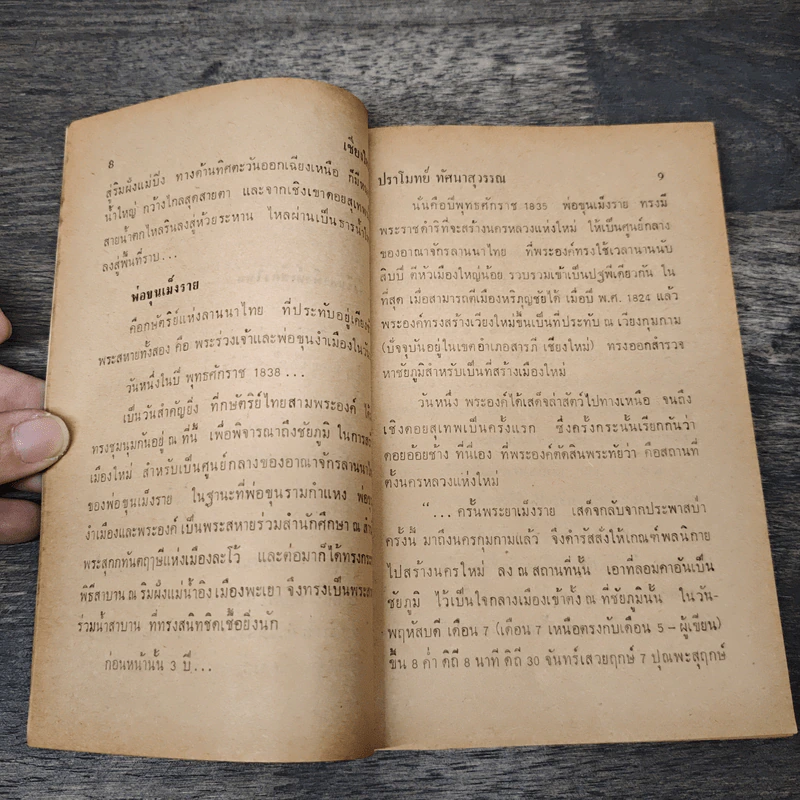 8
เชียงใ
สู่ริมฝั่งแม่ปิง ทางด้านทิศตะวันออกเฉียงเหนือ ก็มี
น้ำใหญ่ กว้างไกลสุดสายตา และจากเชิงเขาดอยสุเทพ
สายน้ำตกไหลรินลงสู่ห้วยระหาน ไหลผ่านเป็นธารน้ำ
ลงสู่พื้นที่ราบ...
พ่อขุนเม็งราย
คือกษัตริย์แห่งลานนาไทย ที่ประทับอยู่เคียง
พระสหายทั้งสอง คือ พระร่วงเจ้าและพ่อขุนงำเมืองใน
วันหนึ่งในปี พุทธศักราช 1838 ...
เป็นวันสำคัญยิ่ง ที่กษัตริย์ไทยสามพระองค์ ได้
ทรงชุมนุมกันอยู่ ณ ที่นี้ เพื่อพิจารณาถึงชัยภูมิ ในการ
เมืองใหม่ สำหรับเป็นศูนย์กลางของอาณาจักรลานนา
ของพ่อขุนเม็งราย ในฐานะที่พ่อขุนรามกำแหง
งำเมืองและพระองค์ เป็นพระสหายร่วมสำนักศึกษา ณ
พระสุกกทันตฤาษีแห่งเมืองละโว้ และต่อมาก็ได้ทรง
พิธีสาบาน ณ ริมฝั่งแม่น้ำอิง เมืองพะเยา จึงทรงเป็น
ร่วมน้ำสาบาน ที่ทรงสนิทชิดเชื้อยิ่งนัก
ก่อนหน้านั้น 3 ปี...
ปราโมทย์ ทัศนาสุวรรณ
9
นั่นคือปีพุทธศักราช 1835 พ่อขุนเม็งราย ทรงมี
พระราชดำริที่จะสร้างนครหลวงแห่งใหม่ ให้เป็นศูนย์กลาง
ของอาณาจักรลานนาไทย ที่พระองค์ทรงใช้เวลานานนับ
สิบปี ตีหัวเมืองใหญ่น้อย รวบรวมเข้าเป็นปฐพีเดียวกัน ใน
ที่สุด เมื่อสามารถตีเมืองหริภุญชัยได้ เมื่อปี พ.ศ. 1824 แล้ว
พระองค์ทรงสร้างเวียงใหม่ขึ้นเป็นที่ประทับ ณ เวียงกุมกาม
(ปัจจุบันอยู่ในเขตอำเภอสารภี เชียงใหม่) ทรงออกสำรวจ
หาชัยภูมิสำหรับเป็นที่สร้างเมืองใหม่
วันหนึ่ง พระองค์ได้เสด็จล่าสัตว์ไปทางเหนือ จนถึง
เชิงดอยสุเทพเป็นครั้งแรก ซึ่งครั้งกระนั้นเรียกกันว่า
ดอยอ้อยช้าง ที่นี่เอง ที่พระองค์ตัดสินพระทัยว่า คือสถานที่
ตั้งนครหลวงแห่งใหม่
“... ครั้นพระยาเม็งราย เสด็จกลับจากประพาสป่า
ครั้งนี้ มาถึงนครกุมกามแล้ว จึงดำรัสสั่งให้เกณฑ์พลนิกาย
ไปสร้างนครใหม่ ลง ณ สถานที่นั้น เอาที่ลอมคาอันเป็น
ชัยภูมิ ไว้เป็นใจกลางเมืองเข้าตั้ง ณ ที่ชัยภูมินั้น ในวัน-
พฤหัสบดี เดือน 7 (เดือน 7 เหนือตรงกับเดือน 5 – ผู้เขียน)
ขึ้น 8 ค่ำ ดิถี 8 นาที ดิถี 30 จันทร์เสวยฤกษ์ 7 ปุณพะสุฤกษ์